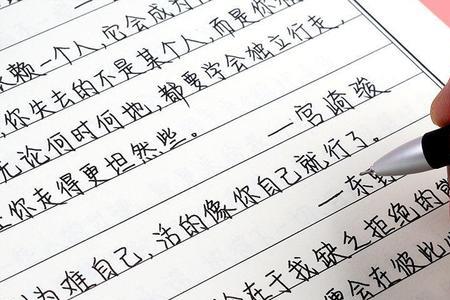 赖一个人,它会成为
你失去的不是某个人,而是你
无论何时何地,都要学会独立行走,
让你走得更坦然些。 —宫崎骏
为难自己,活的像你自己就行了。
—东
在于我缺乏拒绝的
会在彼此